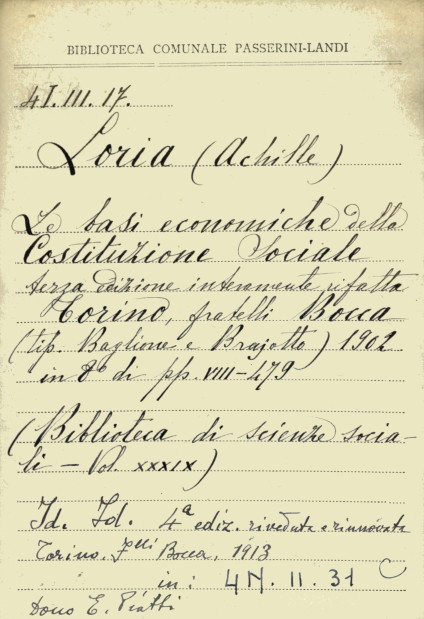 BIBLIOTECA COMUNALE PASSERINI-LANDI
4I.III.17.
Loria (Achille)
Le basi economiche della
Costituzione Sociale
terza edizione interamente rifatta
Torino, fratelli Bocca
(tip. Baglione e Brajotto) 1902
in 8º di pp. VIII-479
(Biblioteca di scienze socia-
li - Vol. XXXIX)
Id. Id. 4ª ediz. riveduta e rinnovata
Torino. F.lli Bocca, 1913
in: 4N.II.31
Dono E. Piatti